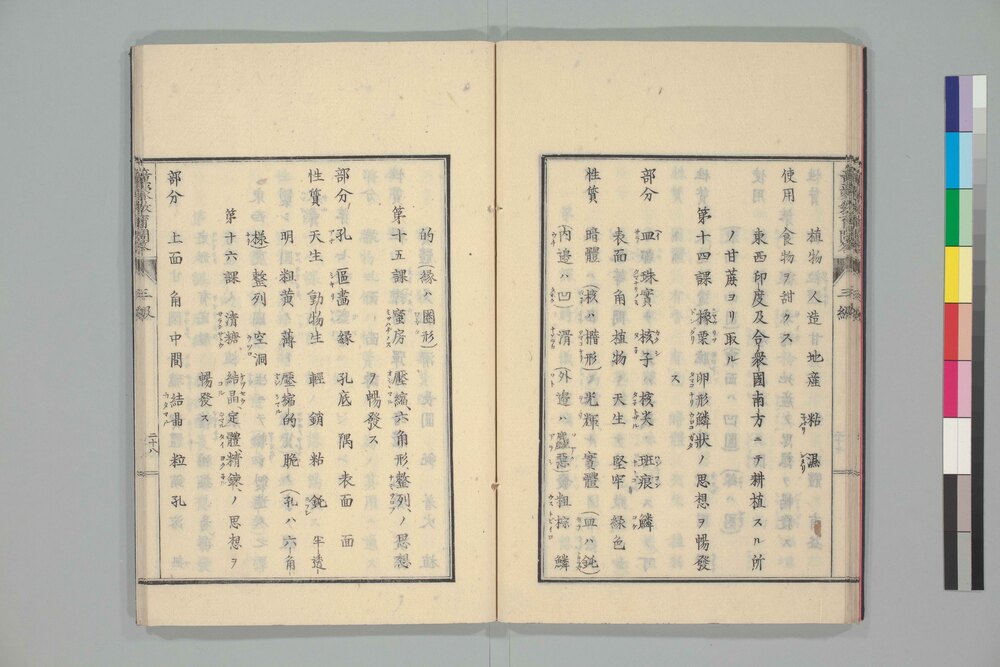 植物人造甘地産粘濕
使用食物ヲ甜クス
東西印度及合衆國南方ニテ耕植スル所
ノ甘蔗ヨリ取ル
第十四課橡栗卵形鱗狀ノ思想ヲ暢發
ス
部分皿珠實核子核尖斑痕鱗
表面角間植物天生堅牢緑色
性質暗體(核ハ橢形)光輝實體(皿ハ鈍)
內邊ハ(凹)滑(外邊ハ麁惡)粗棕鱗
的縁ハ(圈形)
第十五課蜜房壓縮六角形整列ノ思想
ヲ暢發ス
部分孔區畫縁孔底隅表面面
性質天生動物生輕銷粘鈍半透
明粗黄薄壓縮的脆(孔ハ六角
樣)整列空洞
第十六課清糖結晶定體精錬ノ思想ヲ
暢發ス
部分上面角中間結晶粒孔
三級
二十八
三級